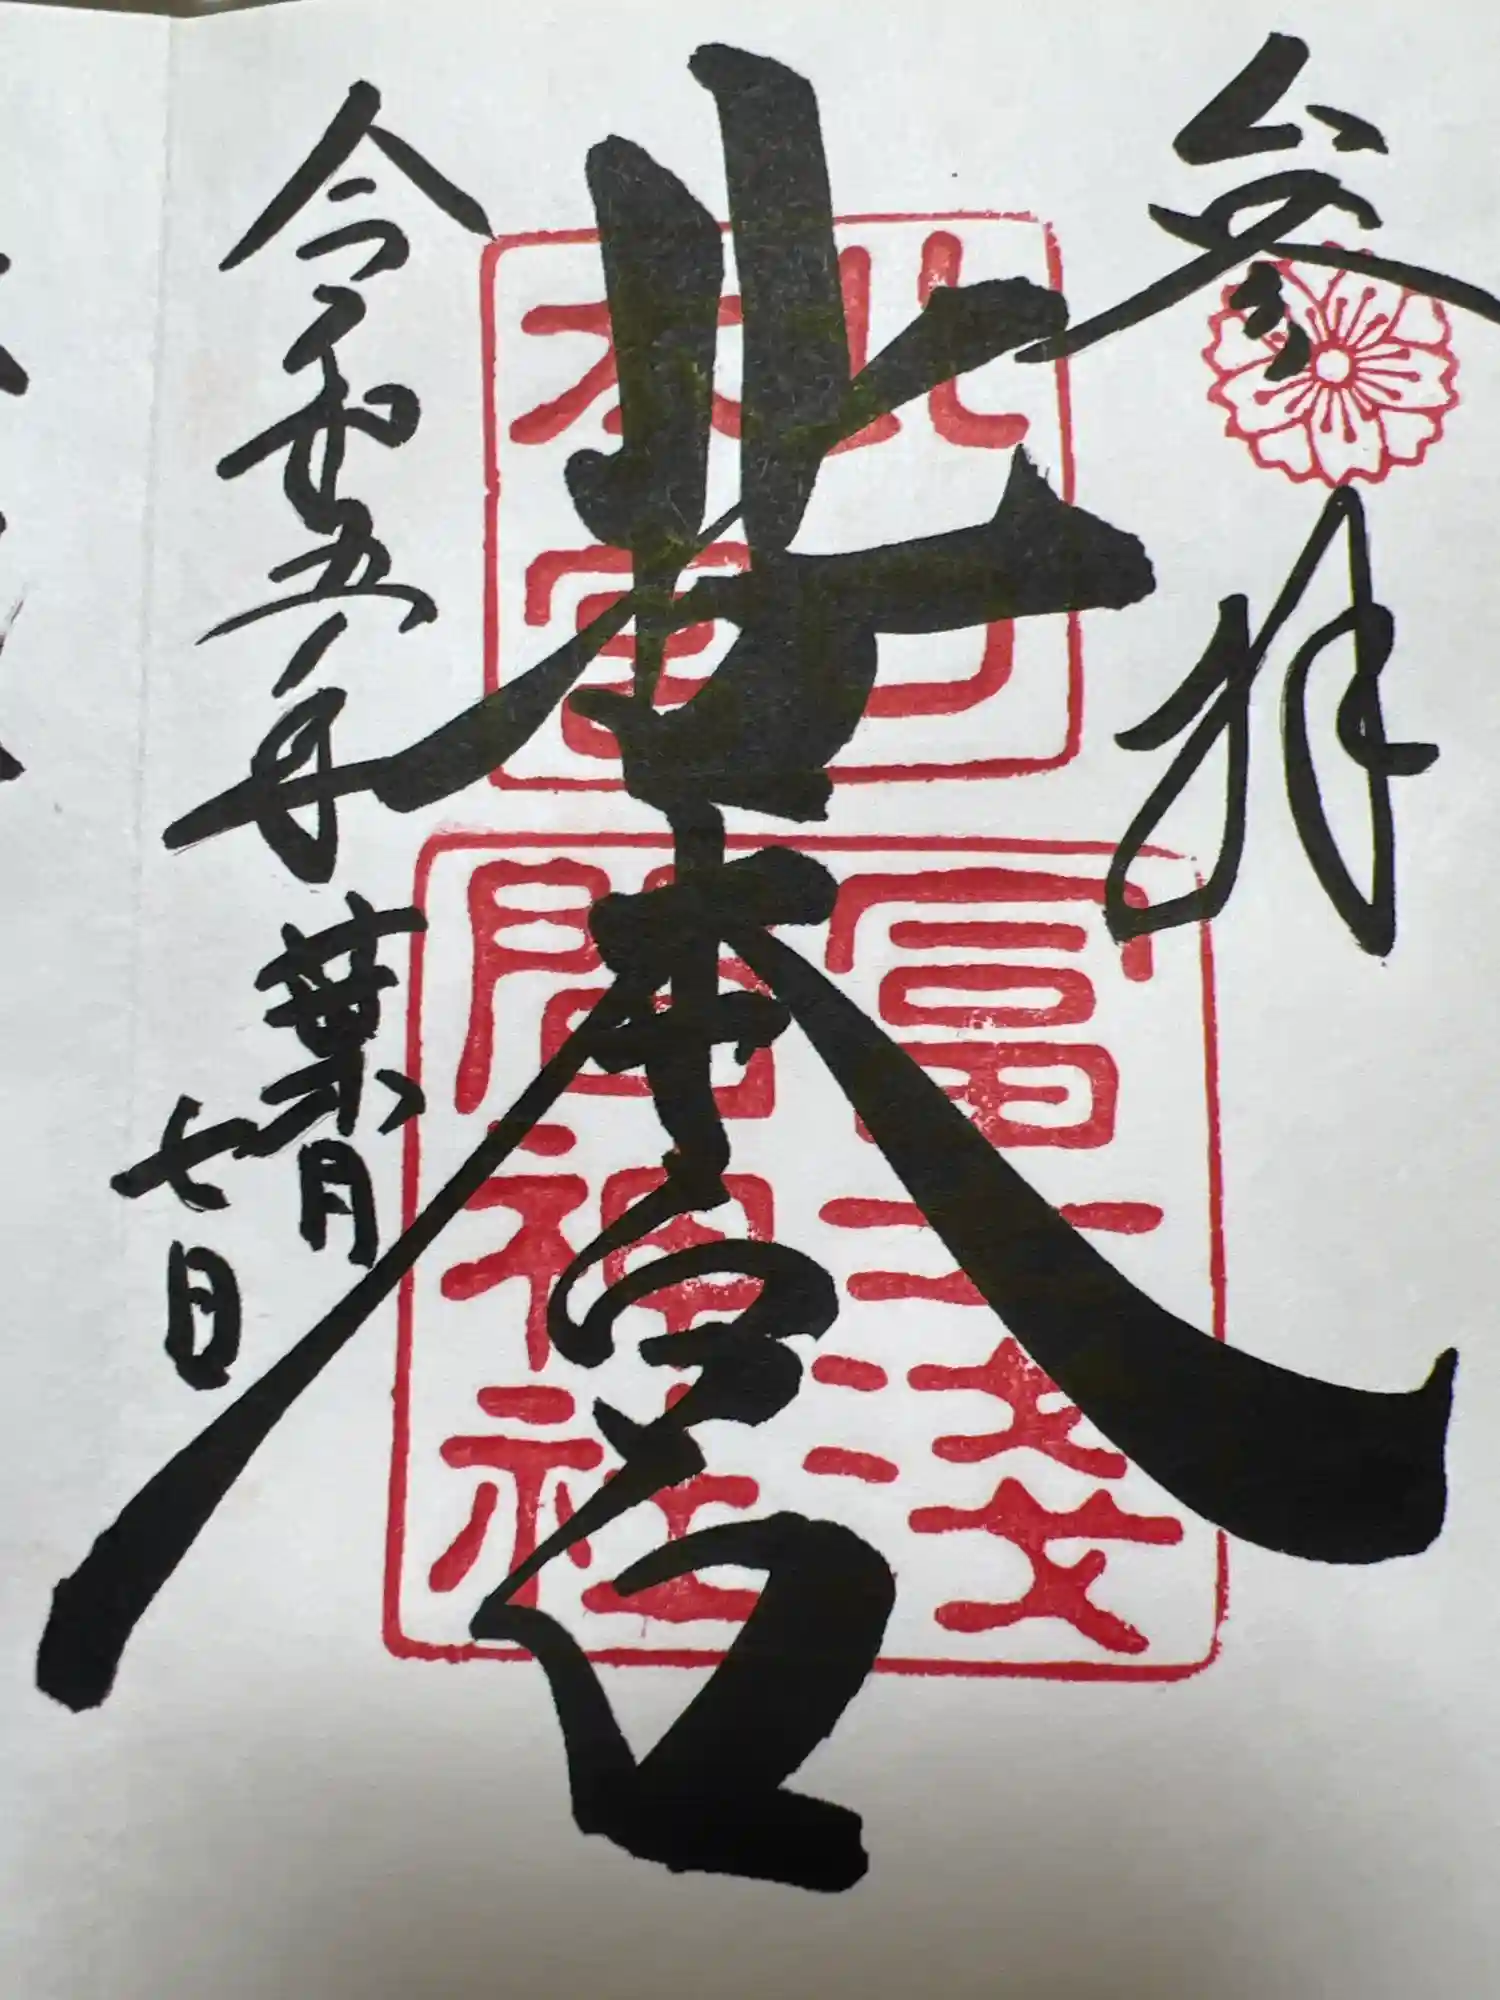 参拝
北口本宮
北口
本宮
冨士浅
間神社
令和五年葉月
七日